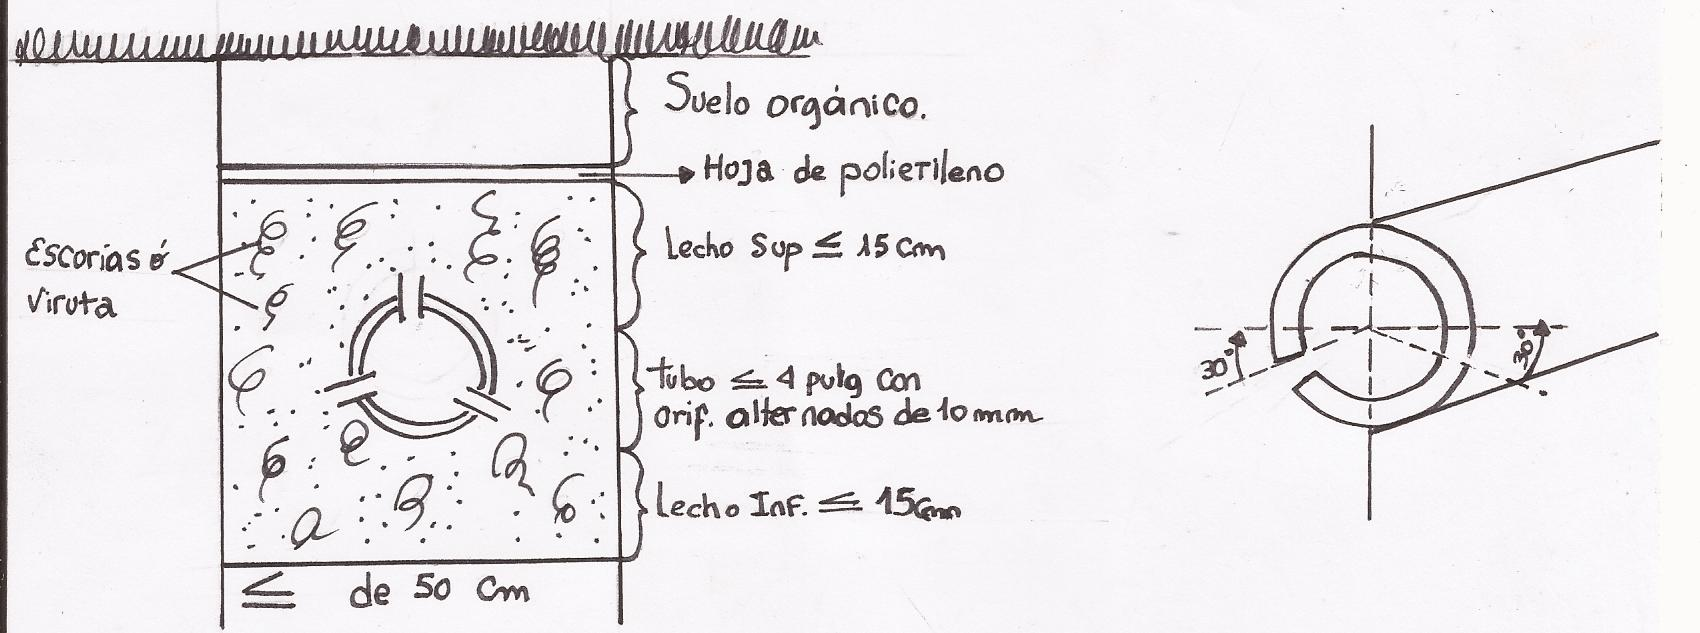 Suelo orgánico.
Hoja de polietileno
Escorias ó
Viruta
Lecho Sup ≤ 15 Cm
tubo ≤ 4 pulg Con
orif. alternados de 10 mm
Lecho Inf. ≤ 15 Cm
≤ de 50 Cm
30°
30°